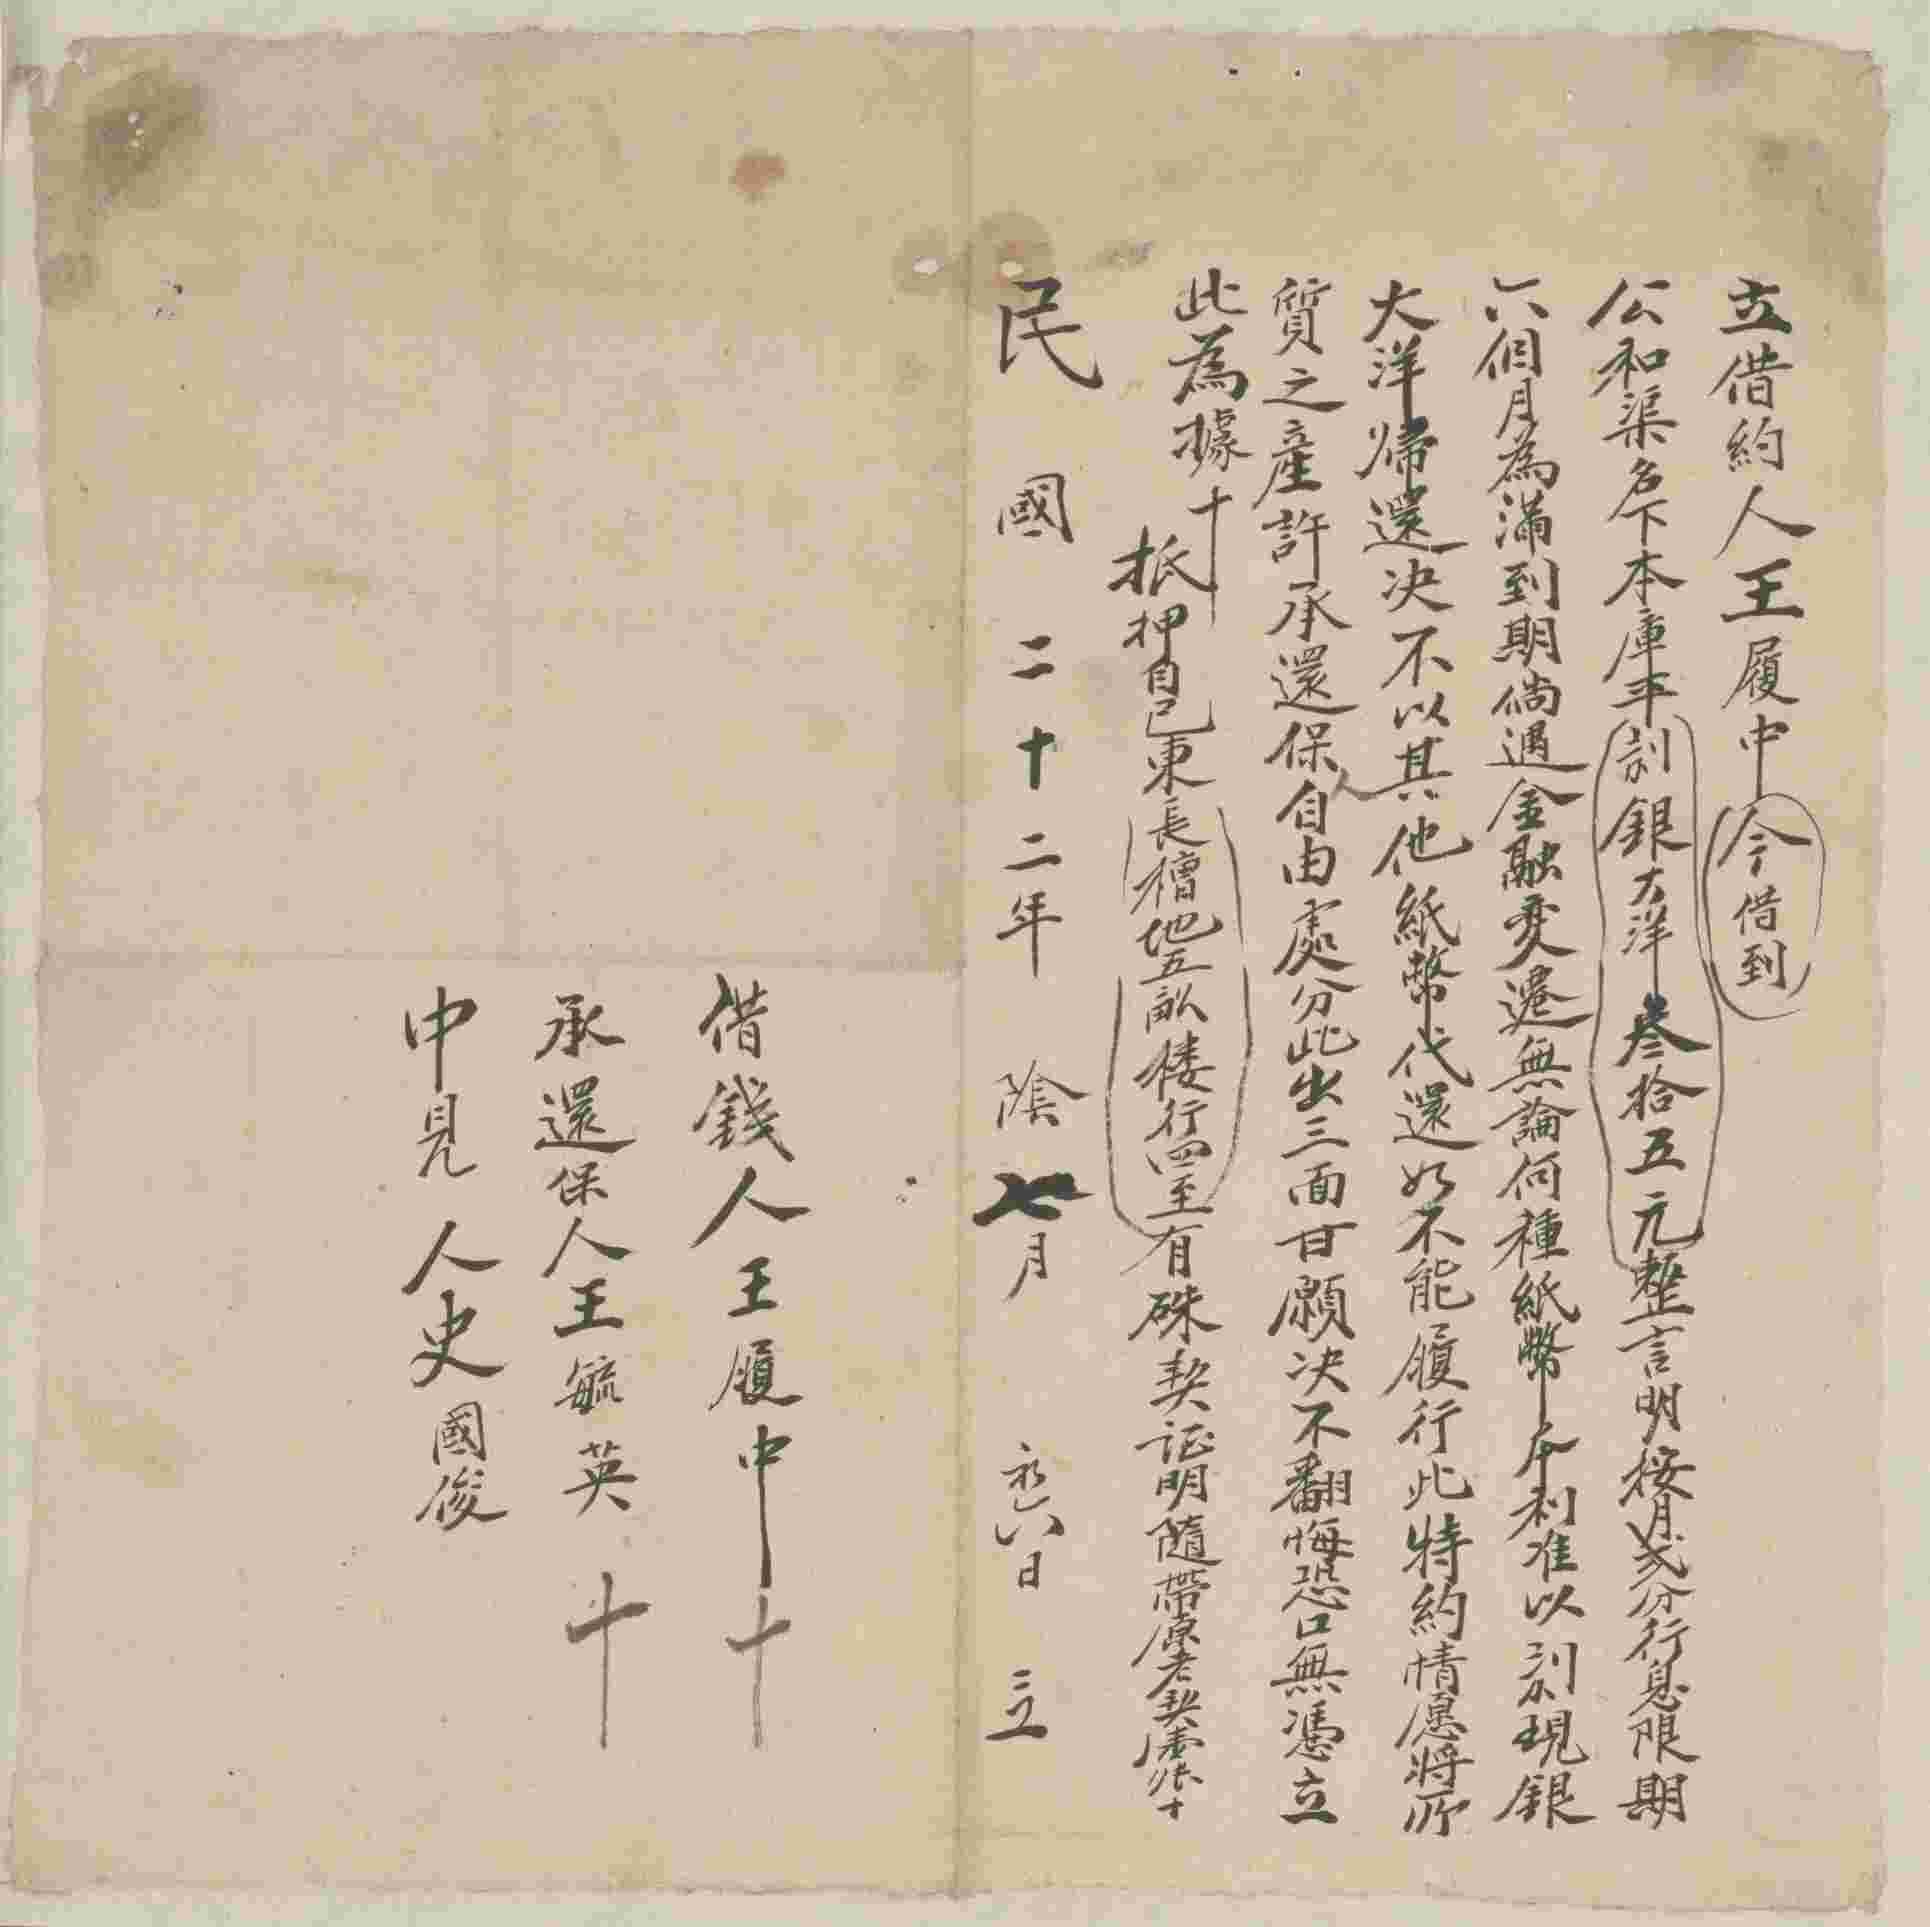 立借約人王履中今借到
公和渠名下本庫平剀銀大洋叄拾五元整言明按月弍分行息限期
六個月為滿到期倘遇金融变遷無論何種紙幣本利准以剀現銀
大洋歸還决不以其他紙幣代還如不能履行此特約情愿將所
質之產許承還保人自由處分此出三面甘願决不翻悔恐口無憑立
此為據十
抵押自己東長槽地五畝楼行四至有硃契证明隨帶原老契壹張十
民國二十二年陰七月初六日立
借錢人王履中十
承還保人王毓英十
中見人史國俊